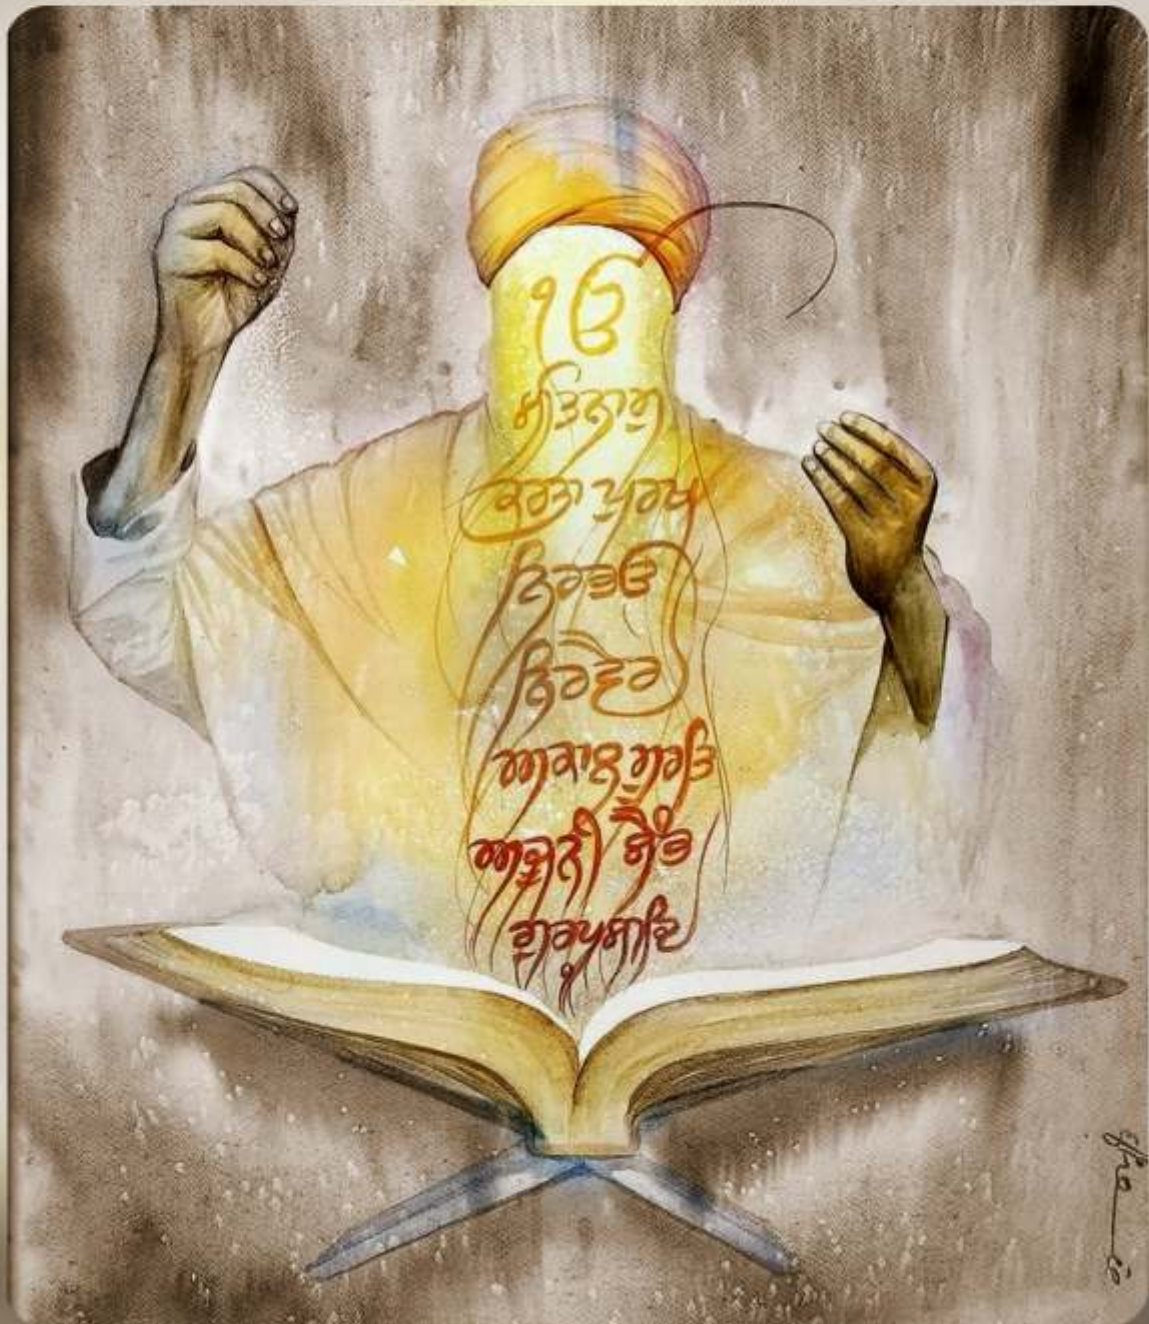 ੴ
ਸਤਿਨਾਮੁ
ਕਰਤਾ ਪੁਰਖੁ
ਨਿਰਭਉ
ਨਿਰਵੈਰੁ
ਅਕਾਲ ਮੂਰਤਿ
ਅਜੂਨੀ ਸੈਭੰ
ਗੁਰਪ੍ਰਸਾਦਿ